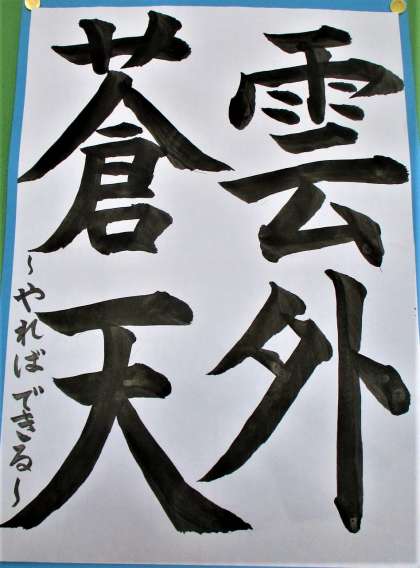 雲外
蒼天
~やればできる~